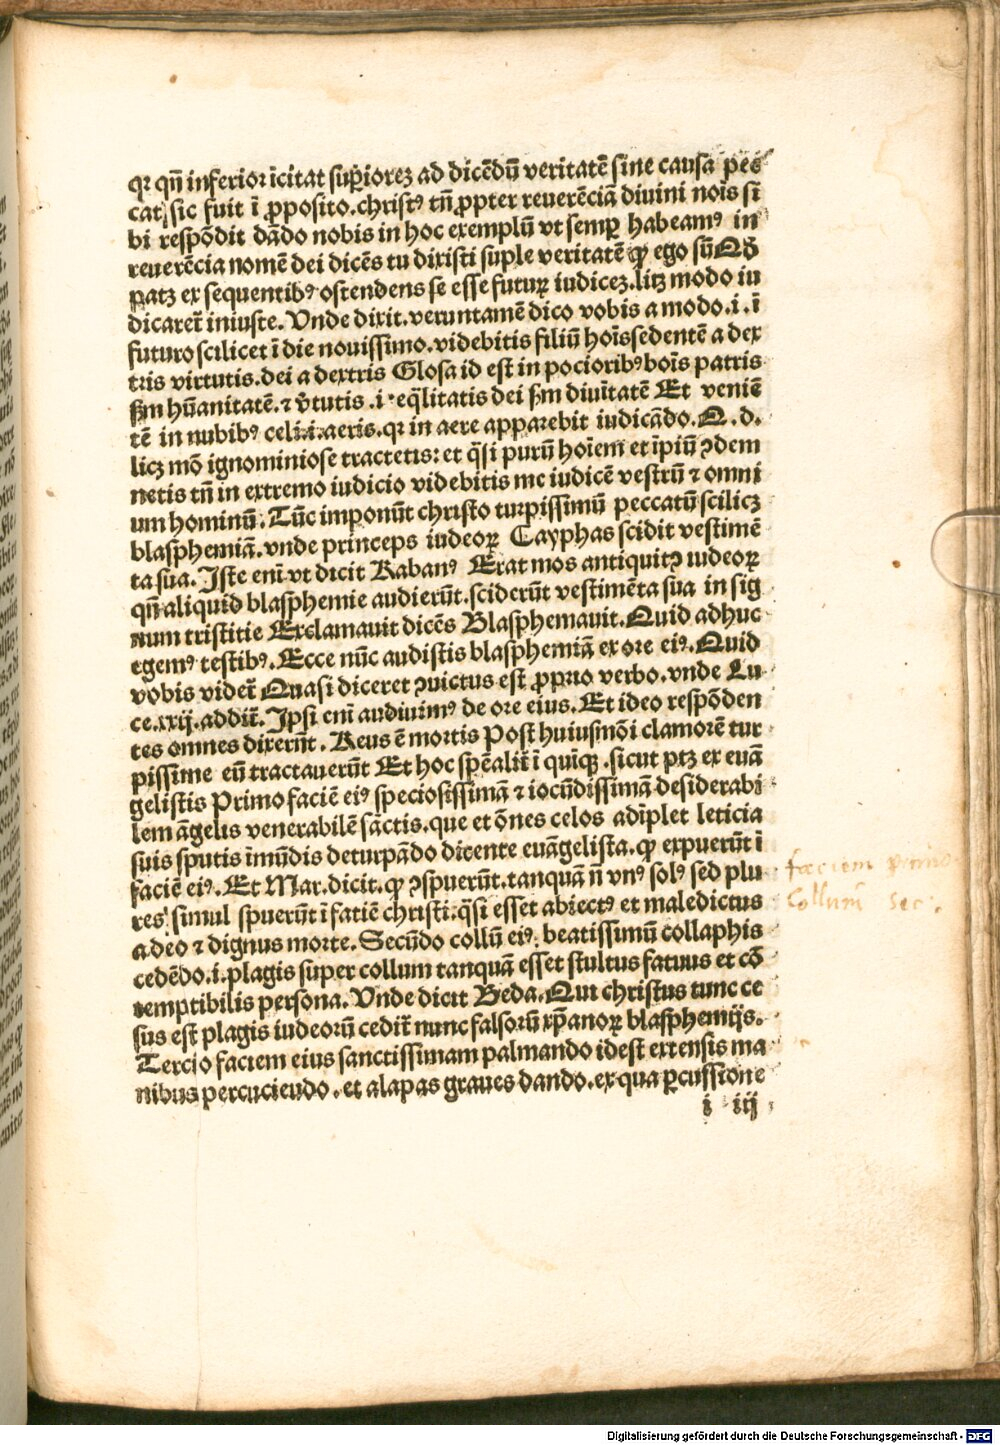 qꝛ qn̄ inferioꝛ īcitat suꝑioreꝫ ad dicēdū veritatē sine causa pec
cat, sic fuit ī ꝓposito.christꝰ tn̄ ꝓpter reuerēciā diuini noīs si
bi respōdit dādo nobis in hoc exemplū vt semꝑ habeamꝰ in
reuerēcia nomē dei dicēs tu dixisti suple veritatē ꝙ ego sū Qd̄
patꝫ ex sequentibꝰ ostendens se esse futuꝝ iudiceꝫ.litꝫ modo iu
dicaret̄ iniuste. Vnde dixit.veruntamē dico vobis a modo.i.ī
futuro scilicet ī die nouissimo.videbitis filiū hoīs sedentē a dex
tris virtutis.dei a dextris Glosa id est in pocioribꝰ boīs patris
ẜm hūanitatē.⁊ v̄tutis.i.eq̄litatis dei ẜm diuītatē Et veniē
tē in nubibꝰ celi.i.aeris.qꝛ in aere apparebit iudicādo.Q.d.
licꝫ mō ignominiose tractetis: et q̄si purū hoīem et īpiū ꝯdem
netis tn̄ in extremo iudicio videbitis me iudicē vestrū ⁊ omni
um hominū. Tūc imponūt christo turpissimū peccatū scilicꝫ
blasphemiā.vnde princeps iudeoꝝ Cayphas scidit vestimē
ta sua. Iste enī vt dicit Rabanꝰ Erat mos antiquitꝰ iudeoꝝ
qn̄ aliquid blasphemie audierūt.sciderūt vestimēta sua in sig
num tristitie Exclamauit dicēs Blasphemauit.Quid adhuc
egemꝰ testibꝰ.Ecce nūc audistis blasphemiā ex ore eiꝰ.Quid
vobis videt̄ Quasi diceret ꝯuictus est ꝓprio verbo.vnde Lu
ce.xxij.addit̄.Ipsi enī audiuimꝰ de ore eius.Et ideo respōden
tes omnes dixerūt. Reus ē mortis Post huiusmōi clamorē tur
pissime eū tractauerūt Et hoc spēalit̄ ī quīqꝫ.sicut ptꝫ ex euā
gelistis Primo faciē eiꝰ speciosissimā ⁊ iocūdissimā desiderabi
lem āgelis venerabilē sāctis.que et ōnes celos adīplet leticia
suis sputis īmūdis deturpādo dicente euāgelista.ꝙ expuerūt ī
faciē eiꝰ.Et Mar.dicit.ꝙ ꝯspuerūt.tanquā n̄ vnꝰ solꝰ sed plu
res simul spuerūt ī fatiē christi.q̄si esset abiectꝰ et maledictus
a deo ⁊ dignus morte.Secūdo collū eiꝰ beatissimū collaphis
cedēdo.i.plagis super collum tanquā esset stultus fatuus et cō
temptibilis persona. Vnde dicit Beda.Qui christus tunc ce
sus est plagis iudeorū cedit̄ nunc falsorū xp̄anoꝝ blasphemijs.
Tercio faciem eius sanctissimam palmando idest extensis ma
nibus percuciendo.et alapas graues dando.ex qua ꝑcussione
i iij
faciem primo
Collum sec:
Digitalisierung gefördert durch die Deutsche Forschungsgemeinschaft - DFG